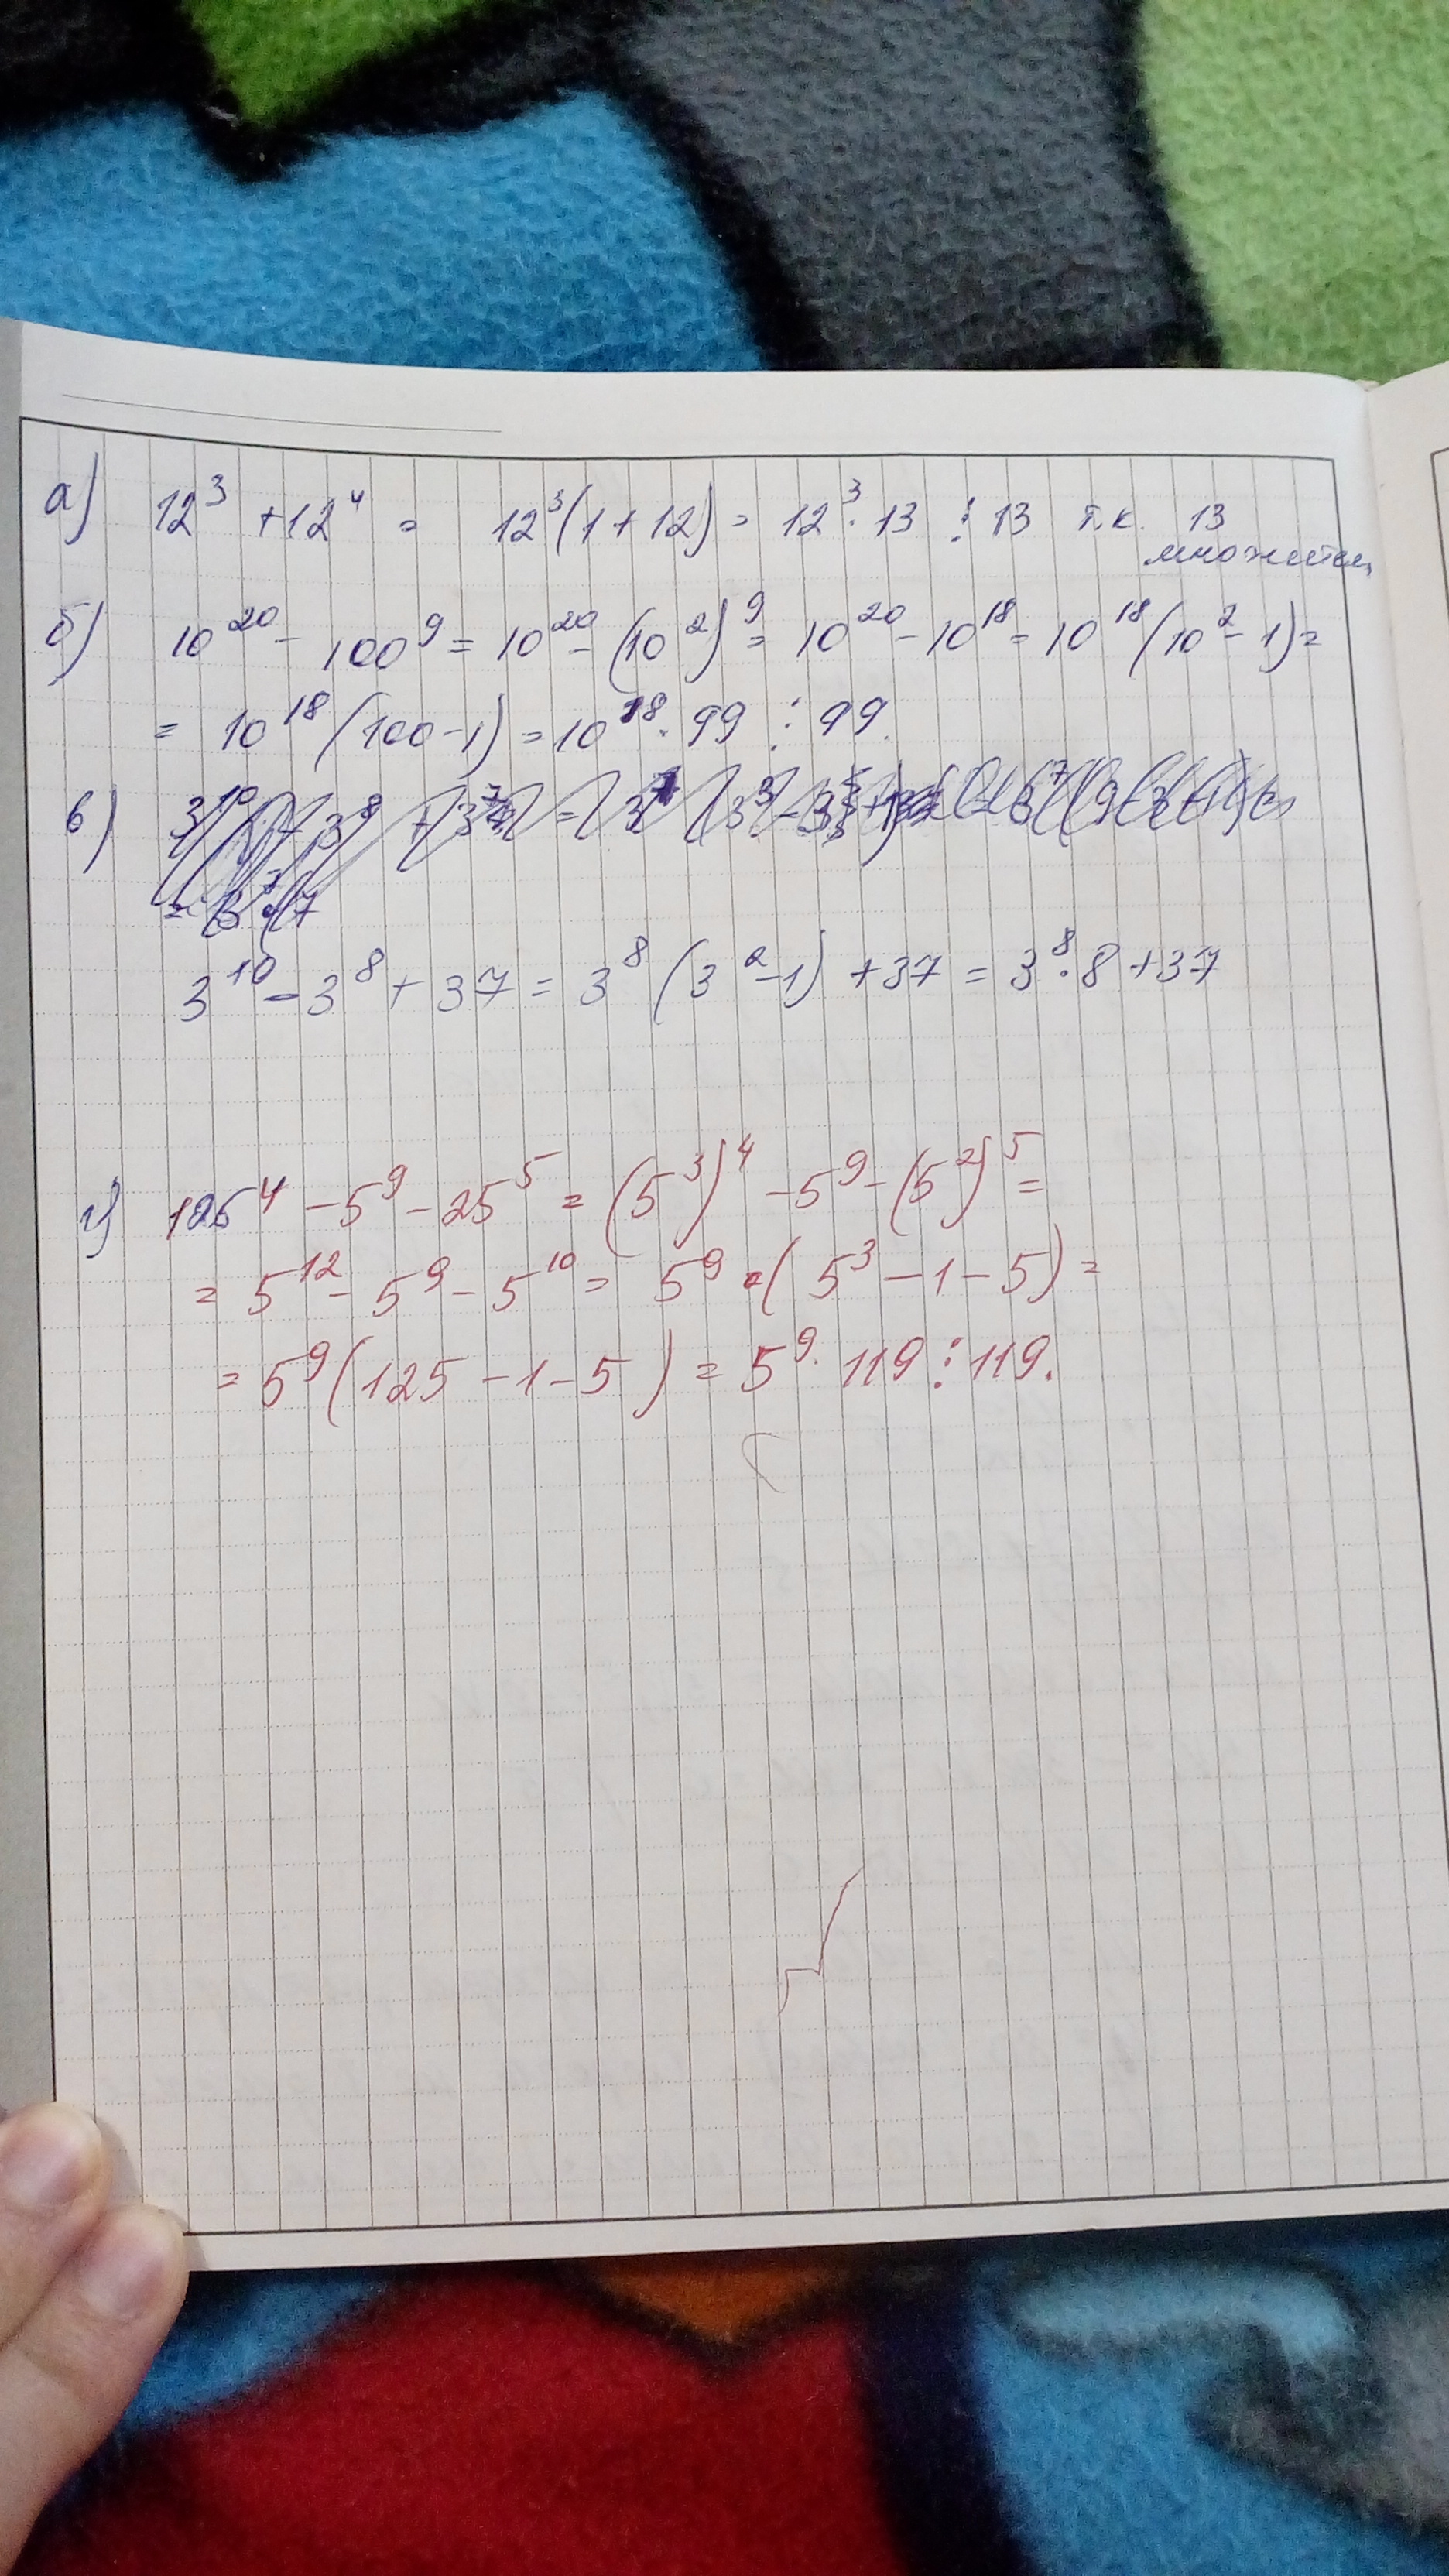 а) 12³ + 12⁴ = 12³(1 + 12) = 12³ · 13 ⋮ 13 т.к. 13
множитель
б) 10²⁰ - 100⁹ = 10²⁰ - (10²)⁹ = 10²⁰ - 10¹⁸ = 10¹⁸(10² - 1) =
= 10¹⁸(100 - 1) = 10¹⁸ · 99 ⋮ 99.
в)
3¹⁰ - 3⁸ + 37 = 3⁸(3² - 1) + 37 = 3⁸ · 8 + 37
г) 125⁴ - 5⁹ - 25⁵ = (5³)⁴ - 5⁹ - (5²)⁵ =
= 5¹² - 5⁹ - 5¹⁰ = 5⁹ · (5³ - 1 - 5) =
= 5⁹(125 - 1 - 5) = 5⁹ · 119 ⋮ 119.